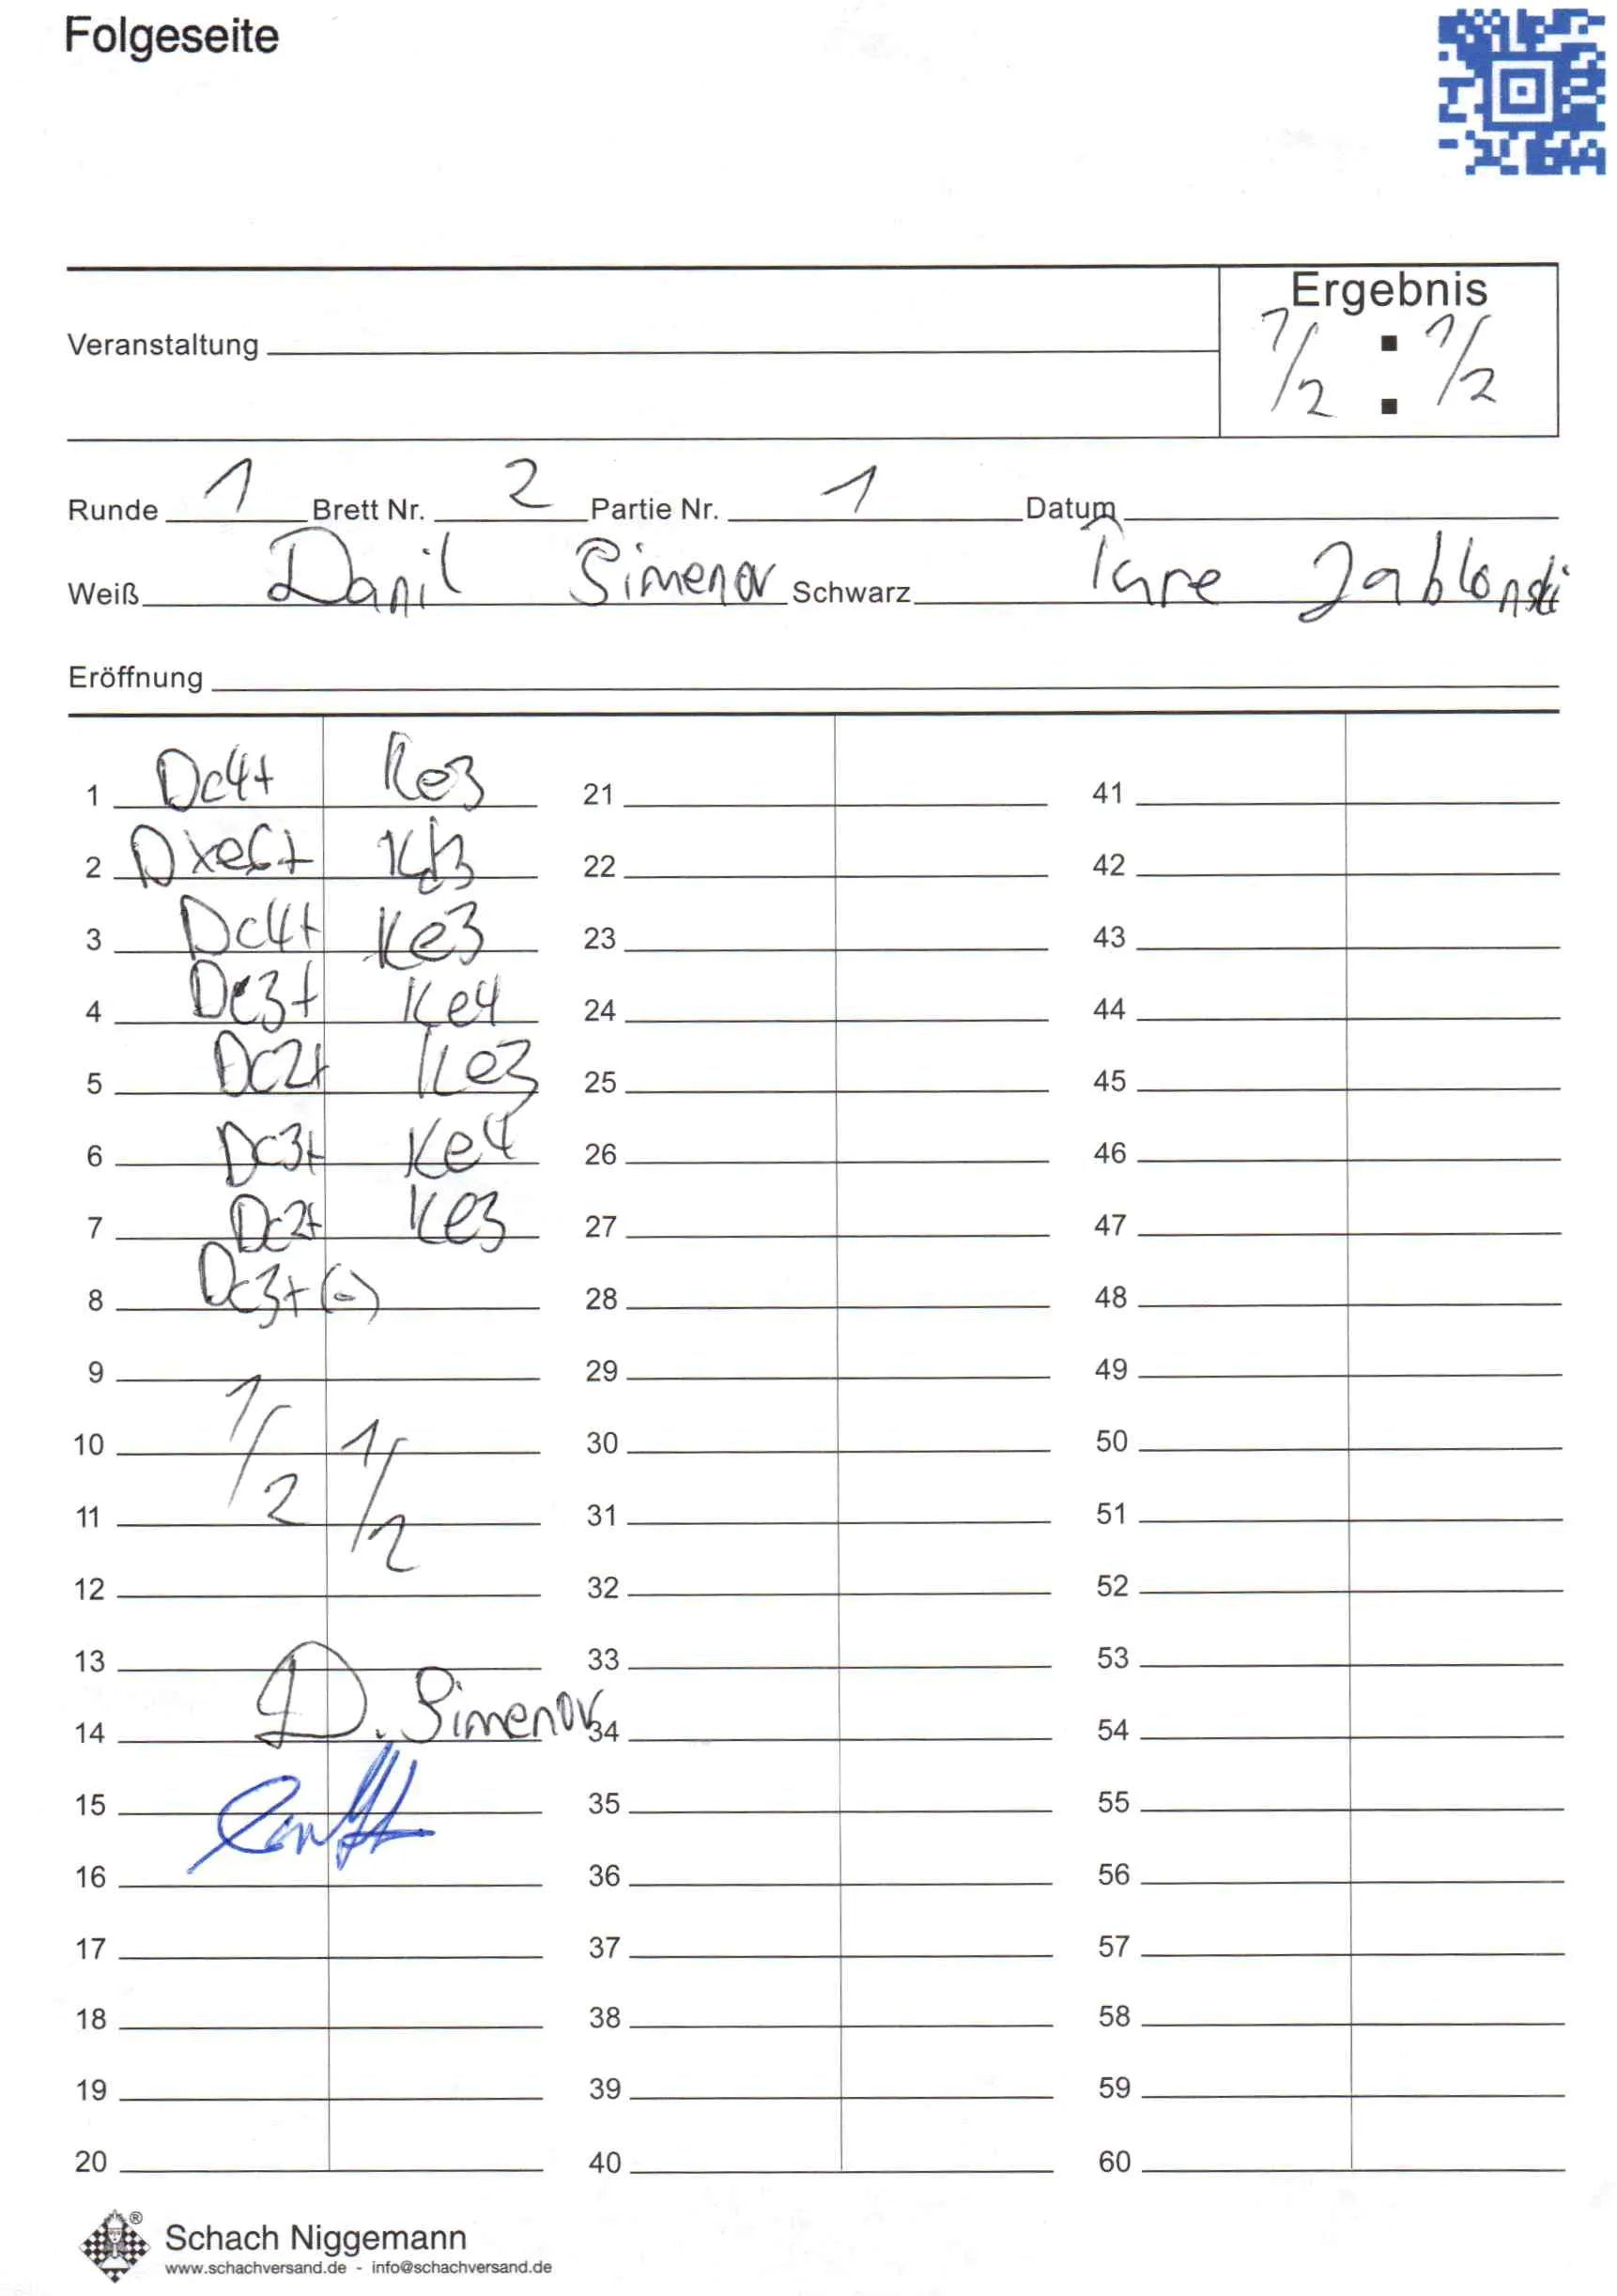 Folgeseite
Ergebnis
1/2 : 1/2
Veranstaltung
Runde 1 Brett Nr. 2 Partie Nr. 1 Datum
Weiß Danil Simenov Schwarz Ture Jablonski
Eröffnung
1 Dc4+ Ke3 21 41
2 Dxe6+ Kd3 22 42
3 Dc4+ Ke3 23 43
4 Dc3+ Ke4 24 44
5 Dc2+ Ke3 25 45
6 Dc3+ Ke4 26 46
7 Dc2+ Ke3 27 47
8 Dc3+(=) 28 48
9 29 49
10 1/2 1/2 30 50
11 31 51
12 32 52
13 33 53
14 D. Simenov 34 54
15 35 55
16 36 56
17 37 57
18 38 58
19 39 59
20 40 60
Schach Niggemann ®
www.schachversand.de - info@schachversand.de